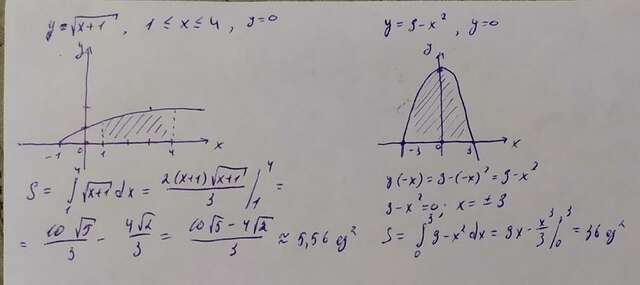 y=√(x+1), 1 ≤ x ≤ 4, y=0
y
-1 0 1 4 x
S = ∫₁⁴ √(x+1) dx = 2(x+1)√(x+1)/3 |₁⁴ =
= 10√5/3 - 4√2/3 = (10√5-4√2)/3 ≈ 5,56 ед²
y=9-x², y=0
y
-3 0 3 x
y(-x)=9-(-x)²=9-x²
9-x²=0; x=±3
S=∫₀³ 9-x² dx = 9x - x³/3 |₀³ = 36 ед²